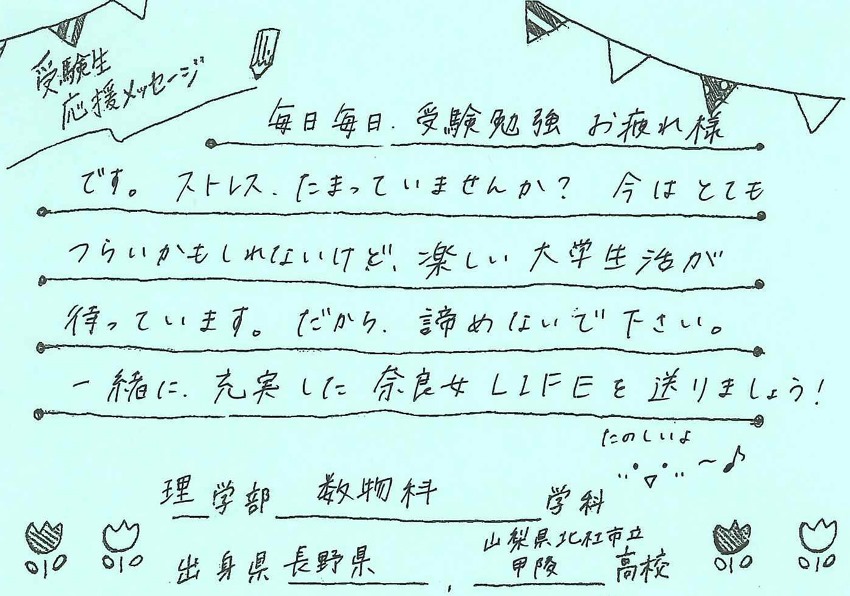 受験生
応援メッセージ
毎日毎日、受験勉強 お疲れ様
です。ストレス、たまっていませんか？ 今はとても
つらいかもしれないけど、楽しい大学生活が
待っています。だから、諦めないで下さい。
一緒に、充実した奈良女LIFEを送りましょう！
たのしいよ
～♪
理学部 数物科 学科
出身県 長野県 , 山梨県北杜市立
甲陵 高校